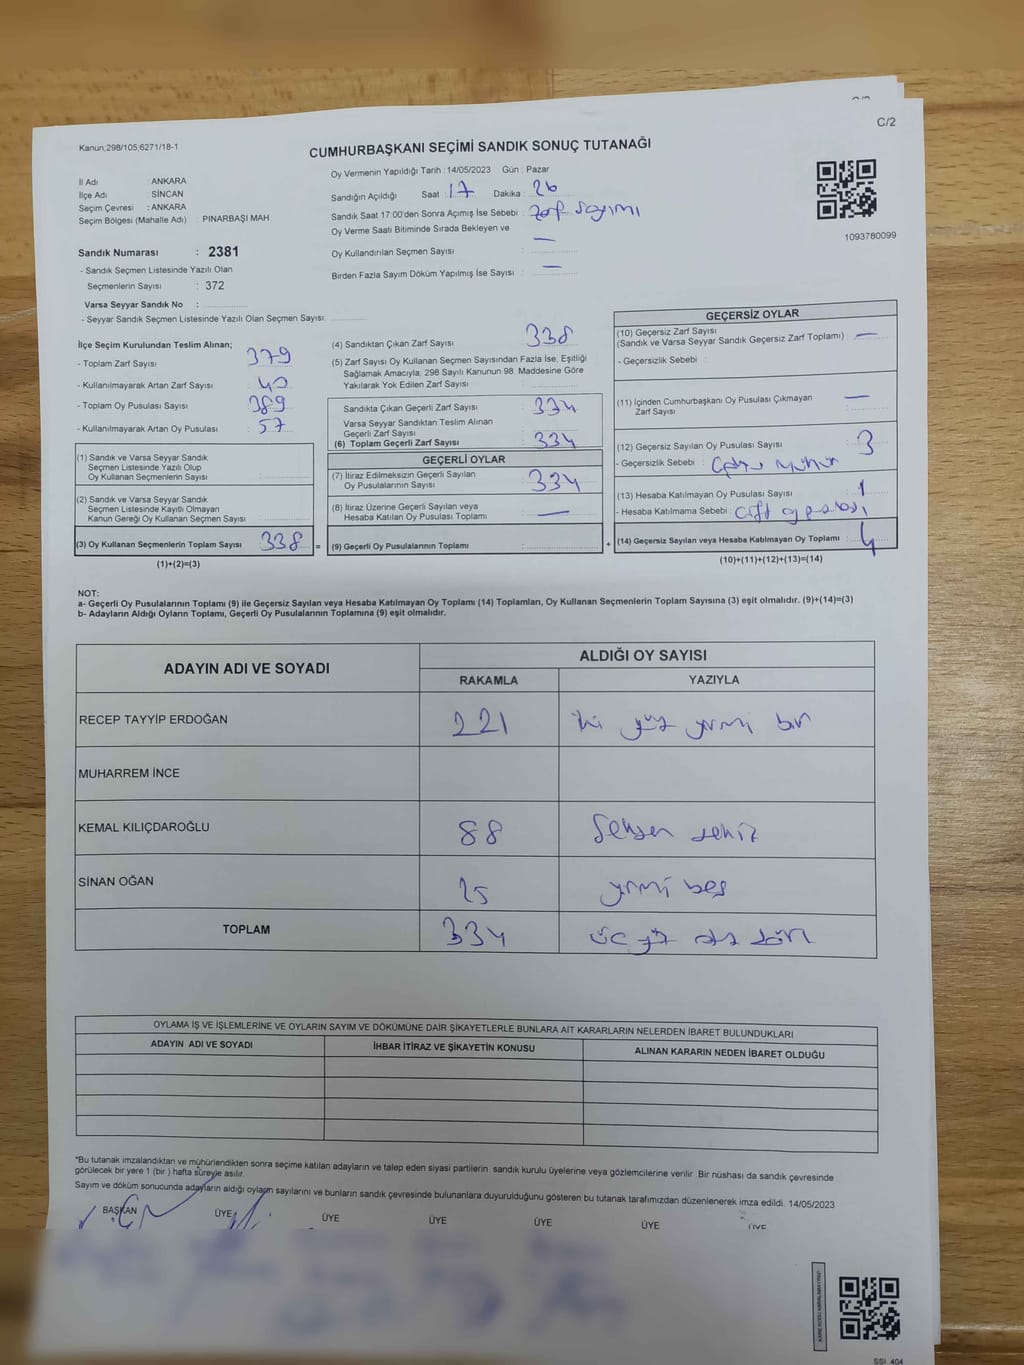 C/2
Kanun;298/105;6271/18-1
CUMHURBAŞKANI SEÇİMİ SANDIK SONUÇ TUTANAĞI
İl Adı : ANKARA
İlçe Adı : SİNCAN
Seçim Çevresi : ANKARA
Seçim Bölgesi (Mahalle Adı) : PINARBAŞI MAH
Sandık Numarası : 2381
- Sandık Seçmen Listesinde Yazılı Olan
Seçmenlerin Sayısı : 372
Varsa Seyyar Sandık No :
- Seyyar Sandık Seçmen Listesinde Yazılı Olan Seçmen Sayısı:
Oy Vermenin Yapıldığı Tarih : 14/05/2023 Gün : Pazar
Sandığın Açıldığı Saat : 17 Dakika : 26
Sandık Saat 17:00'den Sonra Açımış İse Sebebi : Zarf sayımı
Oy Verme Saati Bitiminde Sırada Bekleyen ve
Oy Kullandırılan Seçmen Sayısı : —
Birden Fazla Sayım Döküm Yapılmış İse Sayısı : —
1093780099
İlçe Seçim Kurulundan Teslim Alınan;
- Toplam Zarf Sayısı : 379
- Kullanılmayarak Artan Zarf Sayısı : 40
- Toplam Oy Pusulası Sayısı : 389
- Kullanılmayarak Artan Oy Pusulası : 57
(1) Sandık ve Varsa Seyyar Sandık
Seçmen Listesinde Yazılı Olup
Oy Kullanan Seçmenlerin Sayısı :
(2) Sandık ve Varsa Seyyar Sandık
Seçmen Listesinde Kayıtlı Olmayan
Kanun Gereği Oy Kullanan Seçmen Sayısı :
(3) Oy Kullanan Seçmenlerin Toplam Sayısı : 338 =
(1)+(2)=(3)
(4) Sandıktan Çıkan Zarf Sayısı : 338
(5) Zarf Sayısı Oy Kullanan Seçmen Sayısından Fazla İse, Eşitliği
Sağlamak Amacıyla, 298 Sayılı Kanunun 98. Maddesine Göre
Yakılarak Yok Edilen Zarf Sayısı :
Sandıkta Çıkan Geçerli Zarf Sayısı : 334
Varsa Seyyar Sandıktan Teslim Alınan
Geçerli Zarf Sayısı :
(6) Toplam Geçerli Zarf Sayısı : 334
GEÇERLİ OYLAR
(7) İtiraz Edilmeksizin Geçerli Sayılan
Oy Pusulalarının Sayısı : 334
(8) İtiraz Üzerine Geçerli Sayılan veya
Hesaba Katılan Oy Pusulası Toplamı : —
(9) Geçerli Oy Pusulalarının Toplamı : +
GEÇERSİZ OYLAR
(10) Geçersiz Zarf Sayısı
(Sandık ve Varsa Seyyar Sandık Geçersiz Zarf Toplamı) : —
- Geçersizlik Sebebi :
(11) İçinden Cumhurbaşkanı Oy Pusulası Çıkmayan
Zarf Sayısı : —
(12) Geçersiz Sayılan Oy Pusulası Sayısı : 3
- Geçersizlik Sebebi : mühür
(13) Hesaba Katılmayan Oy Pusulası Sayısı : 1
- Hesaba Katılmama Sebebi : çift oy pusulası
(14) Geçersiz Sayılan veya Hesaba Katılmayan Oy Toplamı : 4
(10)+(11)+(12)+(13)=(14)
NOT:
a- Geçerli Oy Pusulalarının Toplamı (9) ile Geçersiz Sayılan veya Hesaba Katılmayan Oy Toplamı (14) Toplamları, Oy Kullanan Seçmenlerin Toplam Sayısına (3) eşit olmalıdır. (9)+(14)=(3)
b- Adayların Aldığı Oyların Toplamı, Geçerli Oy Pusulalarının Toplamına (9) eşit olmalıdır.
ADAYIN ADI VE SOYADI ALDIĞI OY SAYISI
RAKAMLA YAZIYLA
RECEP TAYYİP ERDOĞAN 221 iki yüz yirmi bir
MUHARREM İNCE
KEMAL KILIÇDAROĞLU 88 Seksen sekiz
SİNAN OĞAN 25 yirmi beş
TOPLAM 334 üç yüz otuz dört
OYLAMA İŞ VE İŞLEMLERİNE VE OYLARIN SAYIM VE DÖKÜMÜNE DAİR ŞİKAYETLERLE BUNLARA AİT KARARLARIN NELERDEN İBARET BULUNDUKLARI
ADAYIN ADI VE SOYADI İHBAR İTİRAZ VE ŞİKAYETİN KONUSU ALINAN KARARIN NEDEN İBARET OLDUĞU
*Bu tutanak imzalandıktan ve mühürlendikten sonra seçime katılan adayların ve talep eden siyasi partilerin sandık kurulu üyelerine veya gözlemcilerine verilir. Bir nüshası da sandık çevresinde
görülecek bir yere 1 (bir ) hafta süreyle asılır.
Sayım ve döküm sonucunda adayların aldığı oyların sayılarını ve bunların sandık çevresinde bulunanlara duyurulduğunu gösteren bu tutanak tarafımızdan düzenlenerek imza edildi. 14/05/2023
BAŞKAN ÜYE ÜYE ÜYE ÜYE ÜYE ÜYE
SSI 404